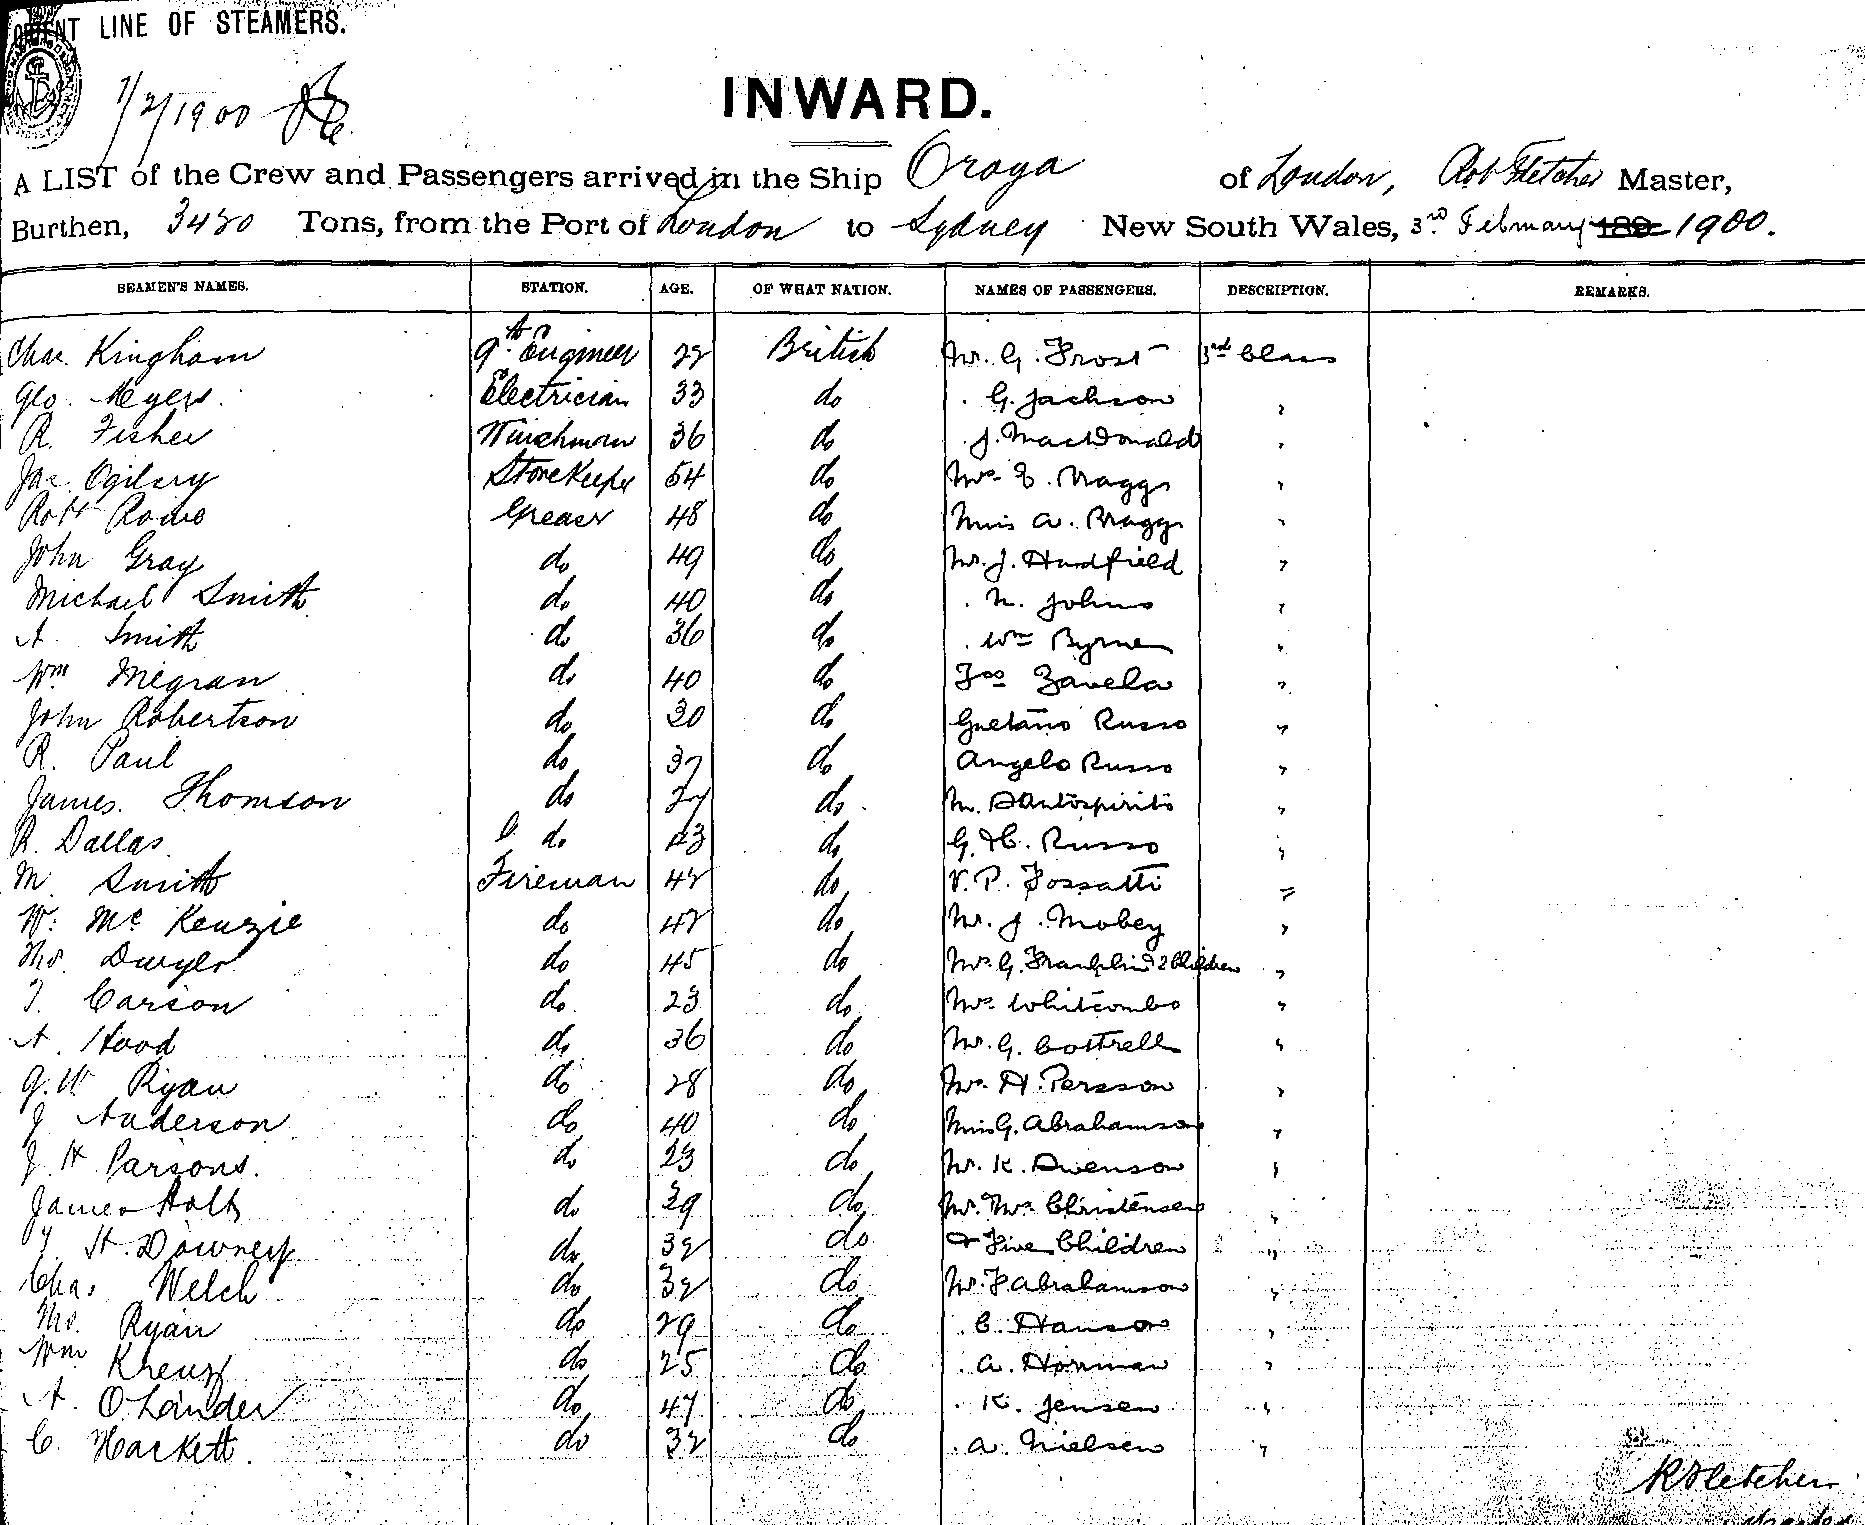 ORIENT LINE OF STEAMERS.
1/2/1900
INWARD.
A LIST of the Crew and Passengers arrived in the Ship Oroya of London, Rob Fletcher Master,
Burthen, 3480 Tons, from the Port of London to Sydney New South Wales, 3rd February 189 1900.
SEAMEN'S NAMES. STATION. AGE. OF WHAT NATION. NAMES OF PASSENGERS. DESCRIPTION. REMARKS.
Chas. Kingham 9th Engineer 22 British Mr. G. Frost 3rd Class
Geo. Meyers. Electrician 33 do . G. Jackson "
R. Fisher Winchman 36 do . J. MacDonald "
Jas. Ogilvy Storekeeper 54 do Mrs E. Braggs "
Robt Rowe Greaser 48 do Miss A. Braggs "
John Gray do 49 do Mr. J. Hadfield "
Michael Smith do 40 do . N. Johns "
A. Smith do 36 do . Wm Byrne "
Wm Megran do 40 do Jos Zavela "
John Robertson do 30 do Gaetano Russo "
R. Paul do 37 do Angelo Russo "
James. Thomson do 27 do M. Santospirito "
R. Dallas. do 43 do G. Russo "
M. Smith Fireman 42 do V. P. Fossatti "
W. Mc Kenzie do 42 do Mr. J. Mobey "
Thos. Dwyer do 45 do Mrs. G. Franklin & 2 Children "
T. Carson do 23 do Mrs. Whitcombe "
A. Hood do 36 do Mr. G. Cottrell "
G. W Ryan do 28 do Mrs. H. Persson "
J Anderson do 40 do Miss G. Abrahamson "
J. H Parsons. do 23 do Mr. K. Swenson "
James Holt do 29 do Mr. Mrs. Christensen "
H. Downey do 32 do & Five Children "
Chas Welch do 32 do Mr. F. Abrahamson "
Thos. Ryan do 29 do . C. Hanson "
Wm Kreuz do 25 do . A. Horman "
A. O. Lander do 47 do . K. Jensen "
C. Hackett. do 32 do . A. Nielsen "
R Fletcher